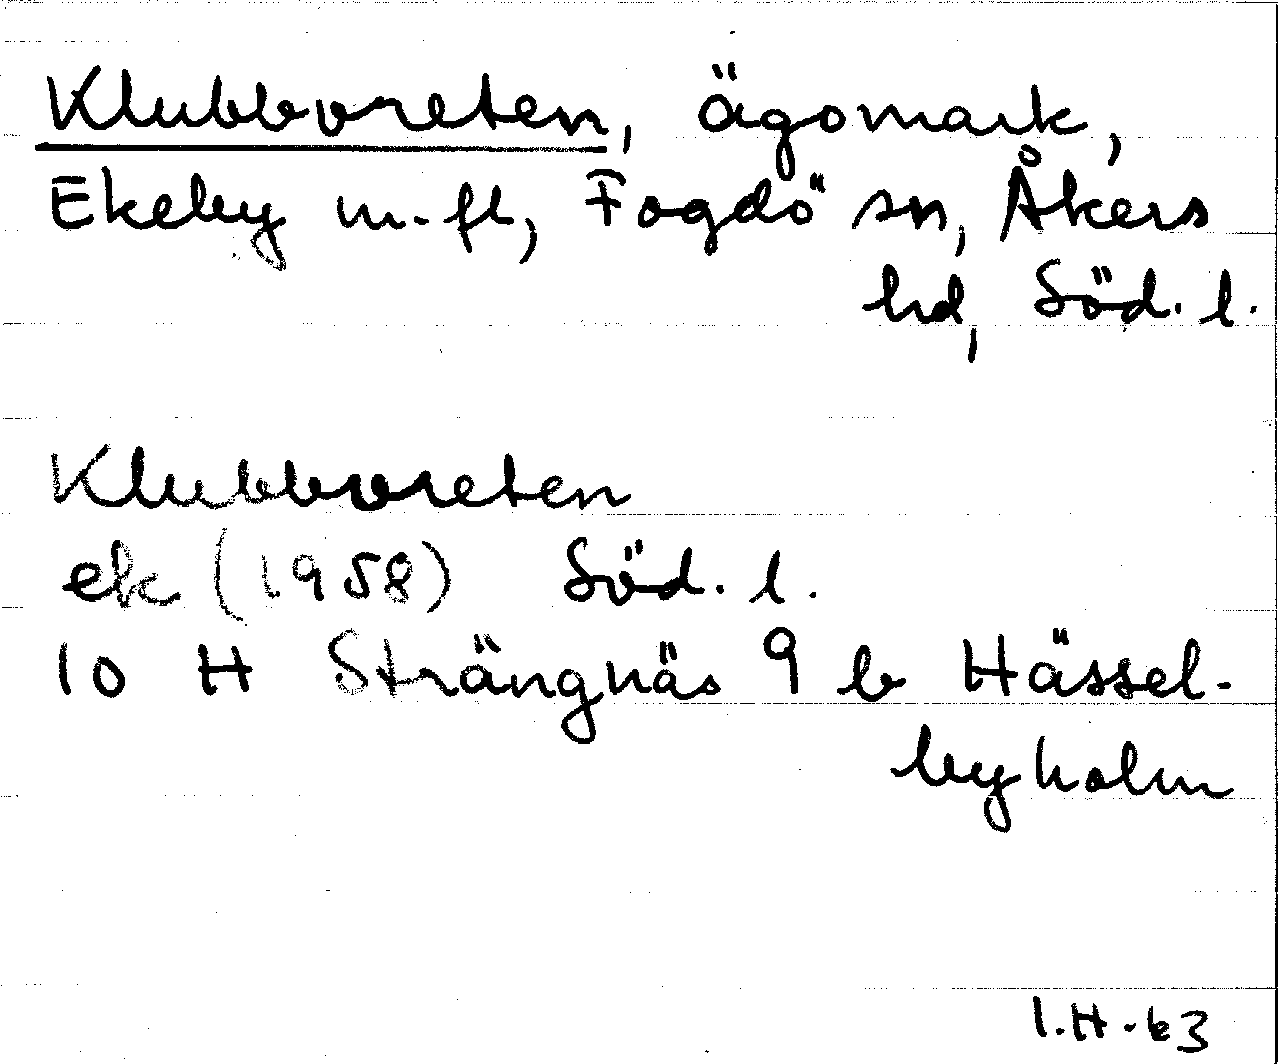 Klubbvreten, ägomark,
Ekeby m.fl, Fogdö sn, Åkers
hd, Söd. l.
Klubbvreten
ek (1958) Söd. l.
10 H Strängnäs 9 b Hässel-
byholm
I.H.63